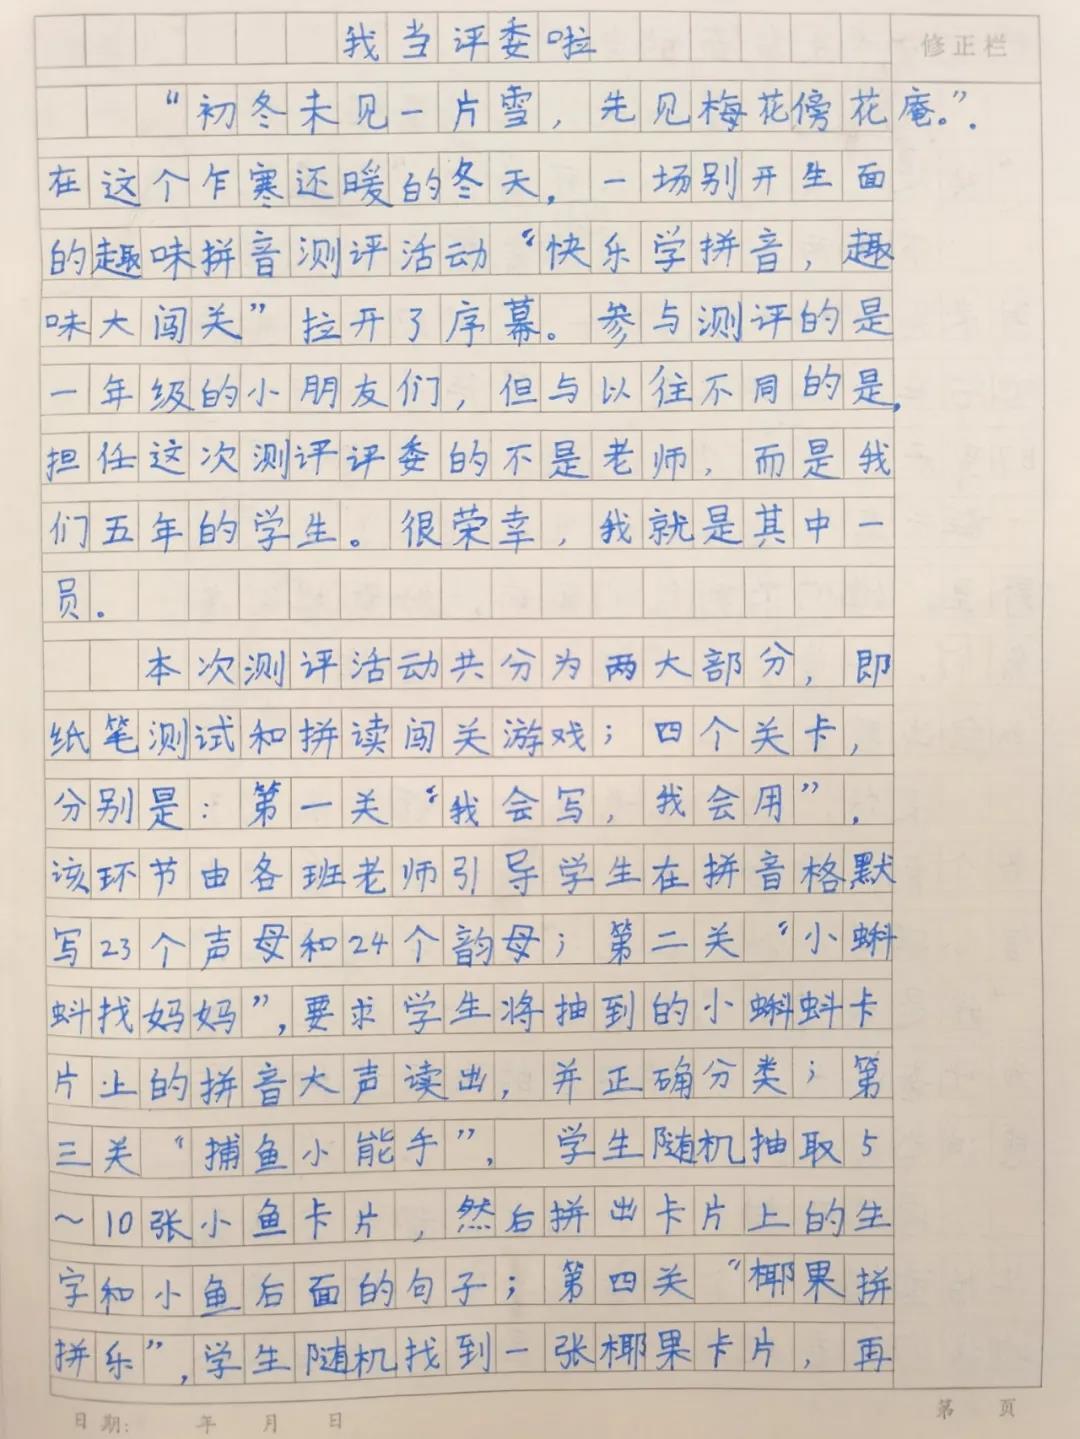 我当评委啦
修正栏
“初冬未见一片雪，先见梅花傍花庵。”.
在这个乍寒还暖的冬天，一场别开生面
的趣味拼音测评活动“快乐学拼音，趣
味大闯关”拉开了序幕。参与测评的是
一年级的小朋友们，但与以往不同的是，
担任这次测评评委的不是老师，而是我
们五年的学生。很荣幸，我就是其中一
员。
本次测评活动共分为两大部分，即
纸笔测试和拼读闯关游戏；四个关卡，
分别是：第一关“我会写，我会用”，
该环节由各班老师引导学生在拼音格默
写23个声母和24个韵母；第二关“小蝌
蚪找妈妈”，要求学生将抽到的小蝌蚪卡
片上的拼音大声读出，并正确分类；第
三关“捕鱼小能手”，学生随机抽取5
～10张小鱼卡片，然后拼出卡片上的生
字和小鱼后面的句子；第四关“椰果拼
拼乐”，学生随机找到一张椰果卡片，再
日期： 年 月 日
第 页